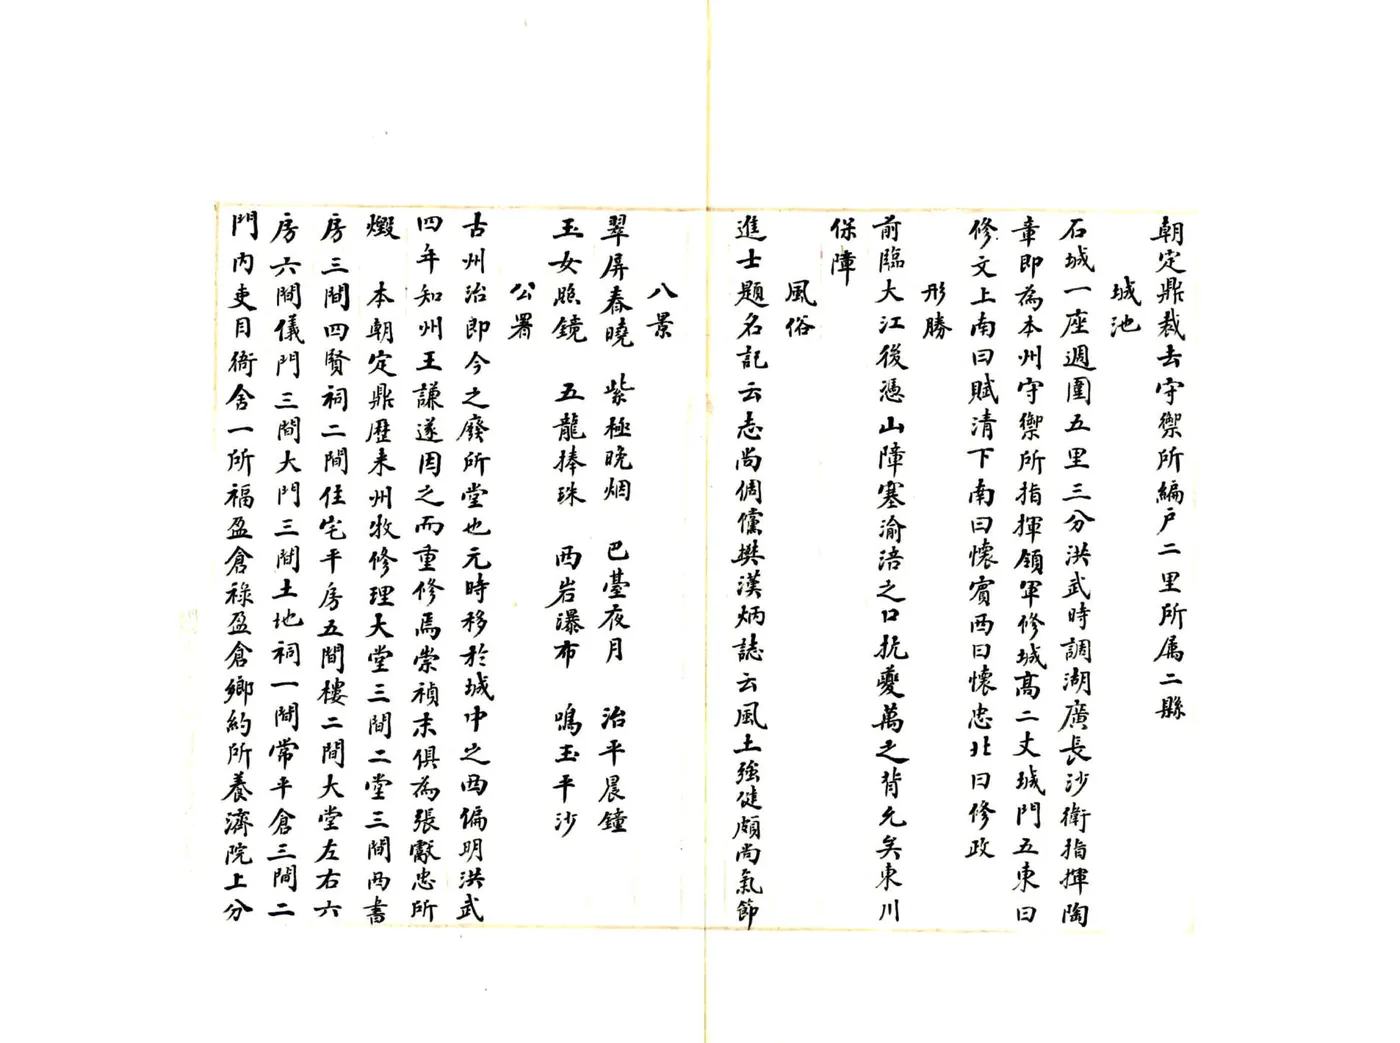 朝定鼎裁去守禦所編戶二里所屬二縣
城池
石城一座週圍五里三分洪武時調湖廣長沙衛指揮陶
章即為本州守禦所指揮領軍修城高二丈城門五東曰
修文上南曰賦清下南曰懷賓西曰懷忠北曰修政
形勝
前臨大江後憑山障塞渝涪之口抗夔萬之背允矣東川
保障
風俗
進士題名記云志尚倜儻樊漢炳誌云風土強健頗尚氣節
八景
翠屏春曉 紫極晚烟 巴臺夜月 治平晨鐘
玉女照鏡 五龍捧珠 西岩瀑布 鳴玉平沙
公署
古州治即今之廢所堂也元時移於城中之西偏明洪武
四年知州王謙遂因之而重修焉崇禎末俱為張獻忠所
燬 本朝定鼎歷来州牧修理大堂三間二堂三間西書
房三間四賢祠二間住宅平房五間樓二間大堂左右六
房六間儀門三間大門三間土地祠一間常平倉三間二
門內吏目衙舍一所福盈倉祿盈倉鄉約所養濟院上分